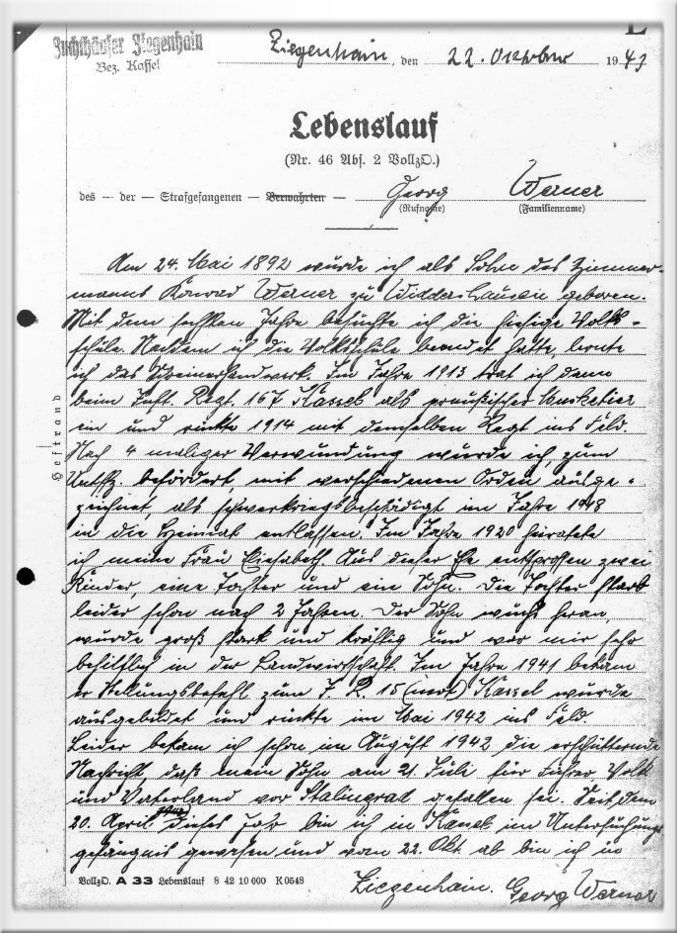 Zuchthäuser Ziegenhain
Bez. Kassel
Ziegenhain, den 22. Oktober 1943
Lebenslauf
(Nr. 46 Abs. 2 VollzO.)
des — der — Strafgefangenen — Verwahrten — Georg Werner
(Rufname) (Familienname)
Am 24. Mai 1892 wurde ich als Sohn des Zimmer-
manns Konrad Werner zu Widdershausen geboren.
Mit dem sechsten Jahre besuchte ich die hiesige Volks-
schule. Nachdem ich die Volksschule beendet hatte, lernte
ich das Schreinerhandwerk. Im Jahre 1913 trat ich dann
beim Inft. Regt. 167 Kassel als preußischer Musketier
ein und rückte 1914 mit demselben Regt ins Feld.
Nach 4 maliger Verwundung wurde ich zum
Untffz. befördert mit verschiedenen Orden ausge-
zeichnet, als schwerkriegsbeschädigt im Jahre 1918
in die Heimat entlassen. Im Jahre 1920 heiratete
ich meine Frau Elisabeth. Aus dieser Ehe entsprossen zwei
Kinder, eine Tochter und ein Sohn. Die Tochter starb
leider schon nach 2 Jahren. Der Sohn wuchs heran,
wurde groß stark und kräftig und war mir sehr
behilflich in der Landwirtschaft. Im Jahre 1941 bekam
er Stellungsbefehl zum J. R. 15 (mot) Kassel wurde
ausgebildet und rückte im Mai 1942 ins Feld.
Leider bekam ich schon im August 1942 die erschütternde
Nachricht, daß mein Sohn am 21. Juli für Führer, Volk
und Vaterland vor Stalingrad gefallen sei. Seit dem
20. April dieses Jahr bin ich in Kassel im Untersuchungs
gefängnis gewesen und vom 22. Okt. ab bin ich in
Ziegenhain. Georg Werner
Heftrand
VollzO. A 33 Lebenslauf 8 42 10 000 K 0548